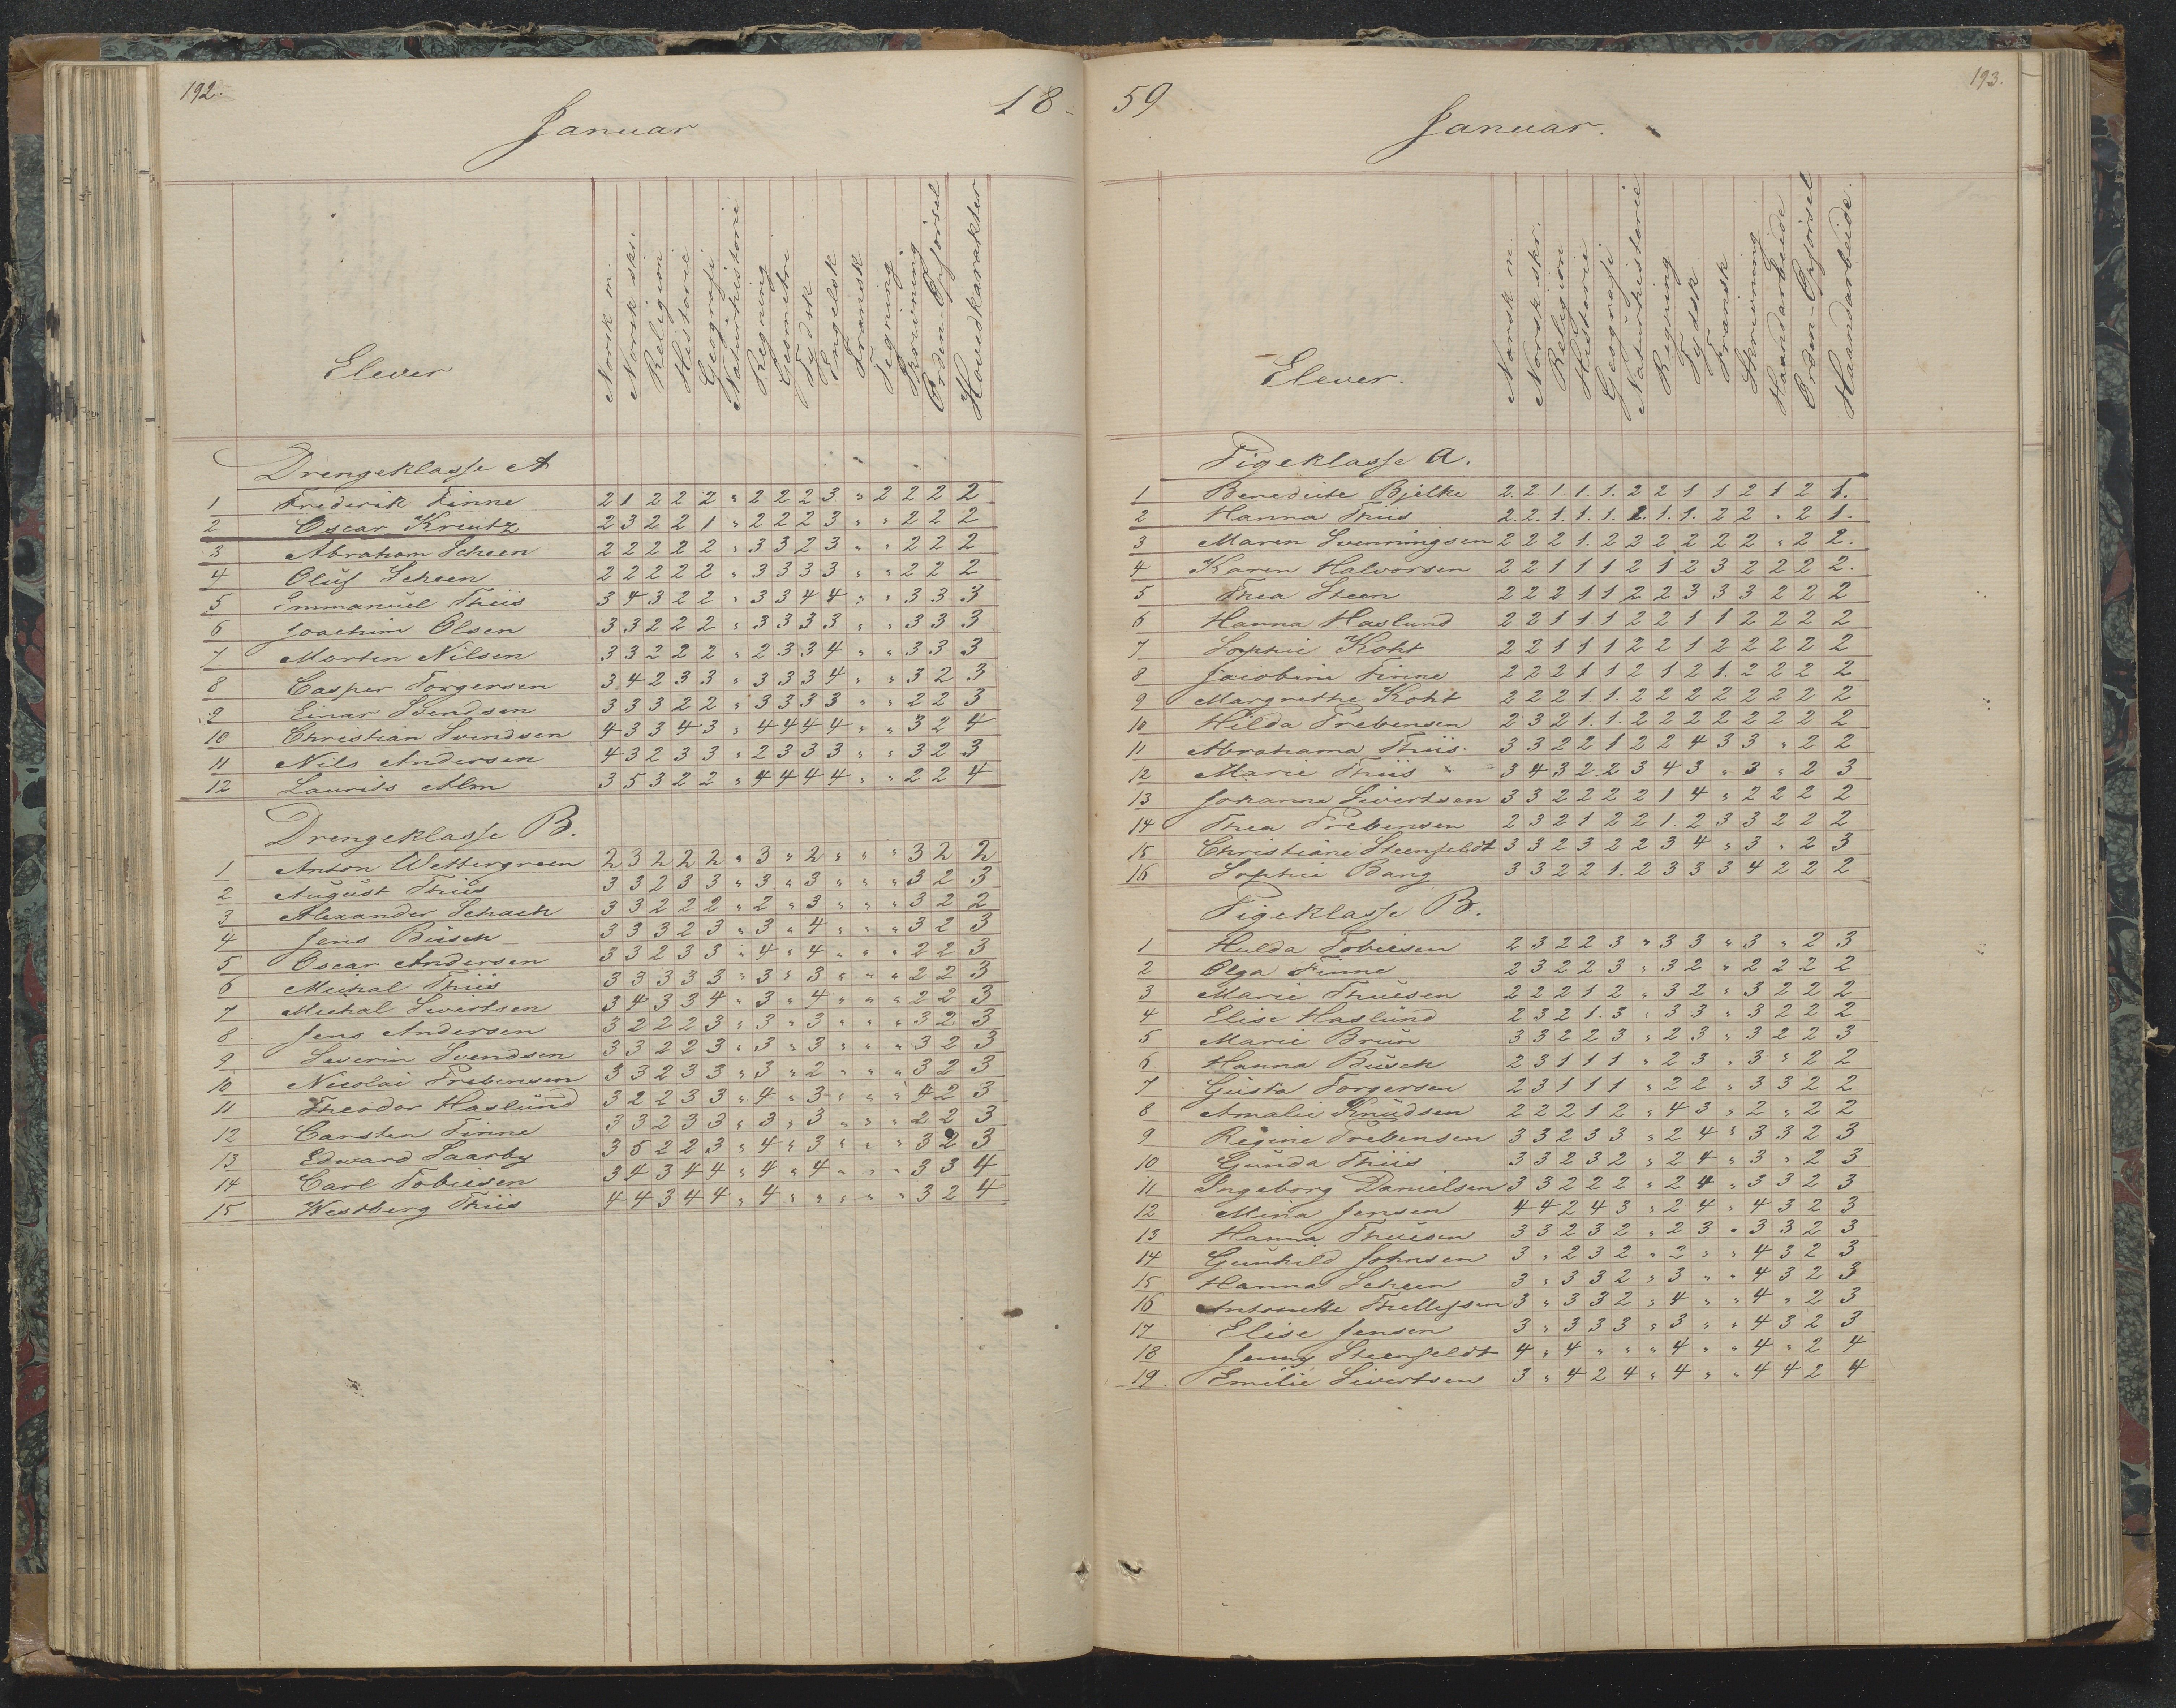 192.
18-
Januar
Elever
Norsk m.
Norsk skr.
Religion
Historie
Geografi
Naturhistorie
Regning
Geometri
Tydsk
Engelsk
Fransk
Tegning
Skrivning
Orden-Opførsel
Hovedkarakter
Drengeklasse A
1 Frederik Finne 2 1 2 2 2 " 2 2 2 3 " 2 2 2 2
2 Oscar Kreutz 2 3 2 2 1 " 2 2 2 3 " " 2 2 2
3 Abraham Scheen 2 2 2 2 2 " 3 3 2 3 " " 2 2 2
4 Oluf Scheen 2 2 2 2 2 " 3 3 3 3 " " 2 2 2
5 Emmanuel Thiis 3 4 3 2 2 " 3 3 4 4 " " 3 3 3
6 Joachim Olsen 3 3 2 2 2 " 3 3 3 3 " " 3 3 3
7 Morten Nilsen 3 3 2 2 2 " 2 3 3 4 " " 3 3 3
8 Casper Torgersen 3 4 2 3 3 " 3 3 3 4 " " 3 2 3
9 Einar Svendsen 3 3 3 2 2 " 3 3 3 3 " " 2 2 3
10 Christian Svendsen 4 3 3 4 3 " 4 4 4 4 " " 3 2 4
11 Nils Andersen 4 3 2 3 3 " 2 3 3 3 " " 3 2 3
12 Laurits Alm 3 5 3 2 2 " 4 4 4 4 " " 2 2 4
Drengeklasse B.
1 Anton Wettergreen 2 3 2 2 2 " 3 " 2 " " " 3 2 2
2 August Thiis 3 3 2 3 3 " 3 " 3 " " " 3 2 3
3 Alexander Schach 3 3 2 2 2 " 2 " 3 " " " 3 2 2
4 Jens Busch 3 3 3 2 3 " 3 " 4 " " " 3 2 3
5 Oscar Andersen 3 3 2 3 3 " 4 " 4 " " " 2 2 3
6 Michal Thiis 3 3 3 3 3 " 3 " 3 " " " 2 2 3
7 Michal Sivertsen 3 4 3 3 4 " 3 " 4 " " " 2 2 3
8 Jens Andersen 3 2 2 2 3 " 3 " 3 " " " 3 2 3
9 Severin Svendsen 3 3 2 2 3 " 3 " 3 " " " 3 2 3
10 Nicolai Prebensen 3 3 2 3 3 " 3 " 2 " " " 3 2 3
11 Theodor Haslund 3 2 2 3 3 " 4 " 3 " " " 4 2 3
12 Carsten Finne 3 3 2 3 3 " 3 " 3 " " " 2 2 3
13 Edward Saarby 3 5 2 2 3 " 4 " 3 " " " 3 2 3
14 Carl Tobiesen 3 4 3 4 4 " 4 " 4 " " " 3 3 4
15 Westberg Thiis 4 4 3 4 4 " 4 " " " " " 3 2 4
59
193.
Januar.
Elever.
Norsk m.
Norsk skr.
Religion
Historie
Geografi
Naturhistorie
Regning
Tydsk
Fransk
Skrivning
Haandarbeide
Orden-Opførsel
Haandarbeide.
Pigeklasse A.
1 Benedicte Bjelke 2. 2 1. 1. 1. 2 2 1 1 2 1 2 1.
2 Hanna Thiis 2. 2. 1. 1. 1. 2. 1. 1. 2 2 " 2 1.
3 Maren Svenningsen 2 2 2 1. 2 2 2 2 2 2 " 2 2.
4 Karen Halvorsen 2 2 1 1 1 2 1 2 3 2 2 2 2.
5 Thea Steen 2 2 2 1 1 2 2 3 3 3 2 2 2
6 Hanna Haslund 2 2 1 1 1 2 2 1 1 2 2 2 2
7 Sophie Koht 2 2 1 1 1 2 2 1 2 2 2 2 2
8 Jacobine Finne 2 2 2 1 1 2 1 2 1. 2 2 2 2
9 Margrethe Koht 2 2 2 1 1. 2 2 2 2 2 2 2 2
10 Hilda Prebensen 2 3 2 1. 1. 2 2 2 2 2 2 2 2
11 Abrahama Thiis. 3 3 2 2 1 2 2 4 3 3 " 2 2
12 Marie Thiis 3 4 3 2. 2 3 4 3 " 3 " 2 3
13 Johanne Sivertsen 3 3 2 2 2 2 1 4 " 2 2 2 2
14 Thea Prebensen 2 3 2 1 2 2 1. 2 3 3 2 2 2
15 Christiane Steenfeldt 3 3 2 3 2 2 3 4 " 3 " 2 3
16 Sophie Bang 3 3 2 2 1. 2 3 3 3 4 2 2 2
Pigeklasse B.
1 Hulda Tobiesen 2 3 2 2 3 " 3 3 " 3 " 2 3
2 Olga Finne 2 3 2 2 3 " 3 2 " 2 2 2 2
3 Marie Thuesen 2 2 2 1 2 " 3 2 " 3 2 2 2
4 Elise Haslund 2 3 2 1. 3 " 3 3 " 3 2 2 2
5 Marie Brun 3 3 2 2 3 " 2 3 " 3 2 2 3
6 Hanna Busch 2 3 1 1 1 " 2 3 " 3 " 2 2
7 Gusta Torgersen 2 3 1 1 1 " 2 2 " 3 3 2 2
8 Amalie Knudsen 2 2 2 1 2 " 4 3 " 2 " 2 2
9 Regine Prebensen 3 3 2 3 3 " 2 4 " 3 3 2 3
10 Gunda Thiis 3 3 2 3 2 " 2 4 " 3 " 2 3
11 Ingeborg Danielsen 3 3 2 2 2 " 2 4 " 3 3 2 3
12 Mina Jensen 4 4 2 4 3 " 2 4 " 4 3 2 3
13 Hanna Thuesen 3 3 2 3 2 " 2 3 " 3 3 2 3
14 Gunhild Johnsen 3 " 2 3 2 " 2 " " 4 3 2 3
15 Hanna Scheen 3 " 3 3 2 " 3 " " 4 3 2 3
16 Antonette Thellefsen 3 " 3 3 2 " 4 " " 4 " 2 3
17 Elise Jensen 3 " 3 3 3 " 3 " " 4 3 2 3
18 Jenny Steenfeldt 4 " 4 " " " 4 " " 4 " 2 4
19. Emilie Sivertsen 3 " 4 2 4 " 4 " " 4 4 2 4